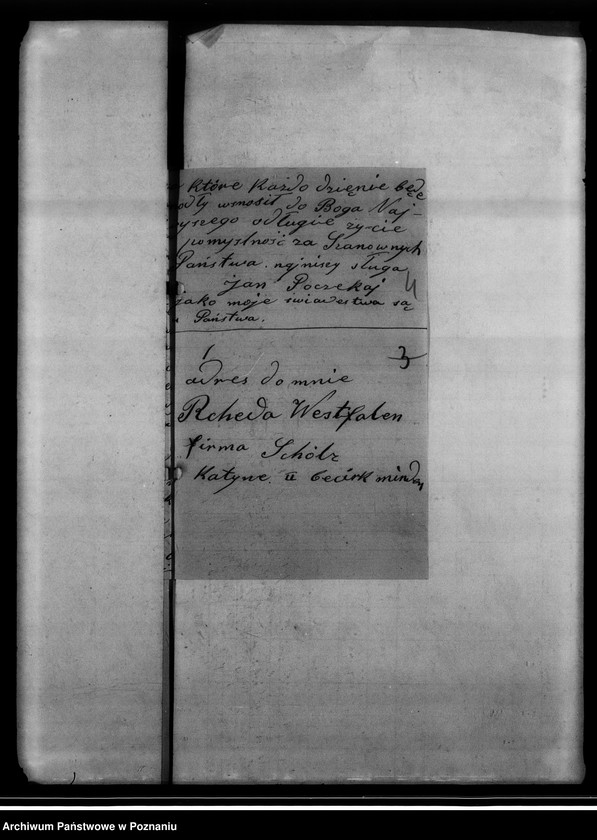 które każdo dzięnie będę
odły wmosił do Boga Naj-
yszego odługie zycie
pomyslność za Szanownych
Państwa. najniscy sługa
Jan Poczekaj
jako moje swiadestwa są
Państwa.
4
3
adres do mnie
Rcheda Westfalen
firma Schölz
Katyne II becirk minden
Archiwum Państwowe w Poznaniu